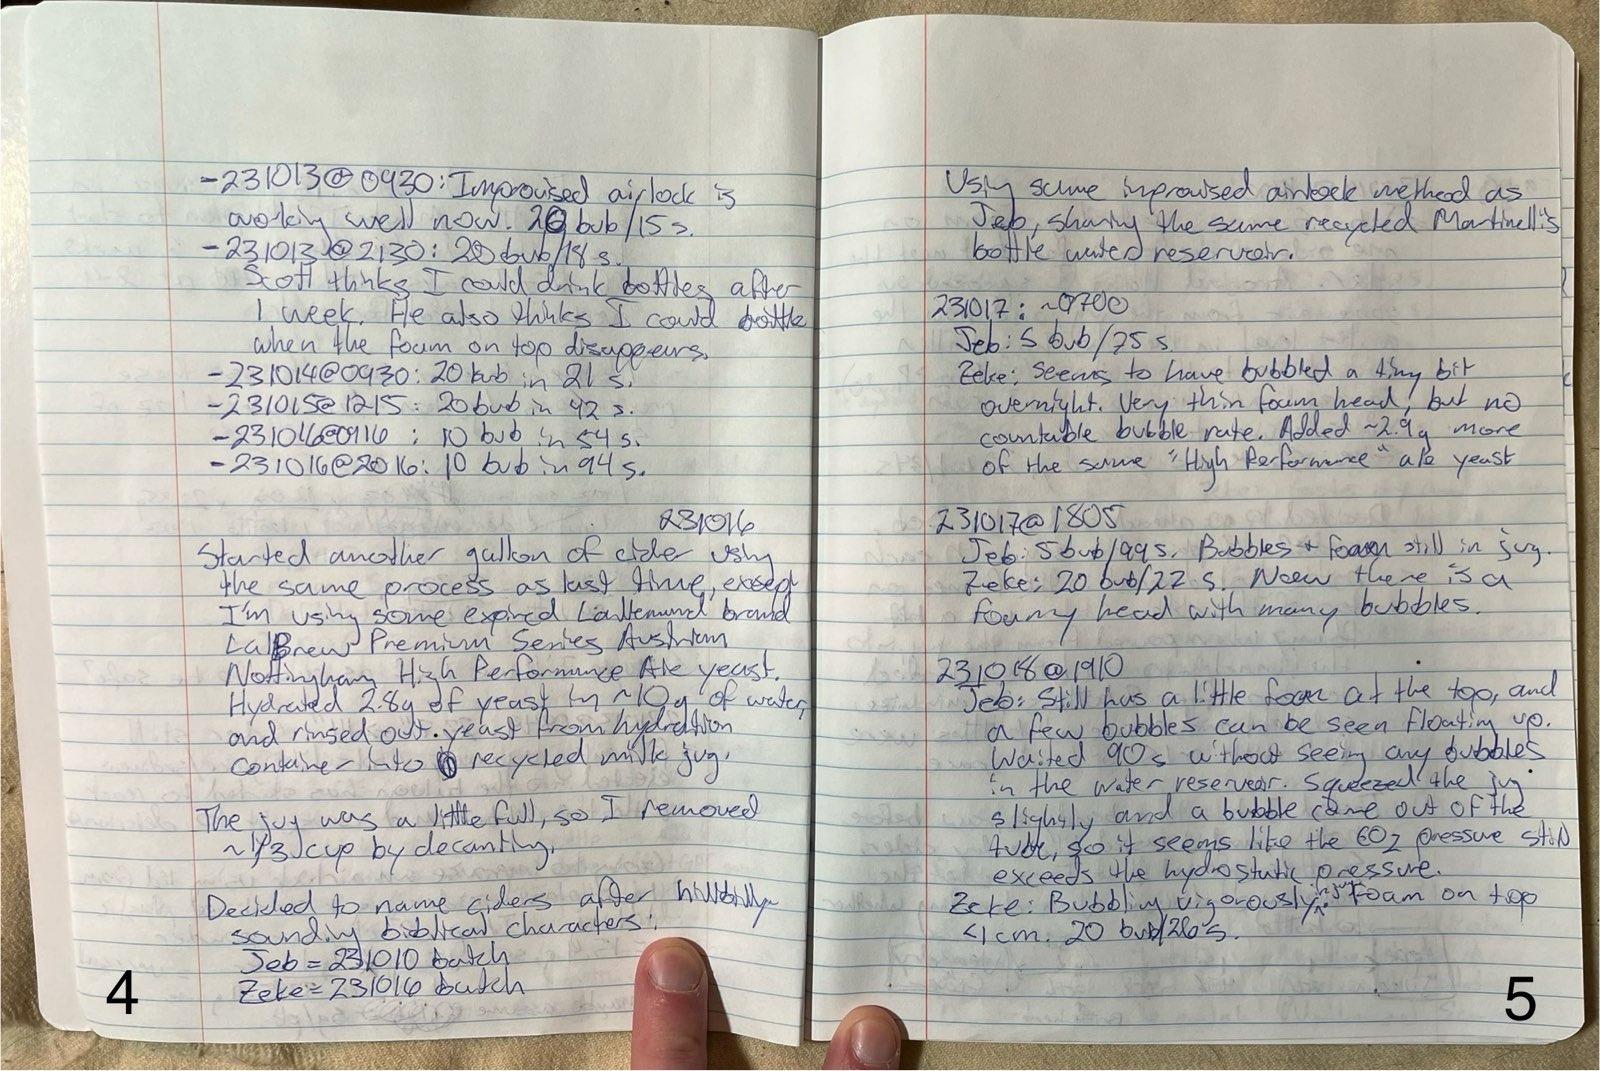 -231013@0930: Improvised airlock is
working well now. 20 bub/15 s.
-231013@2130: 20 bub/18 s.
Scott thinks I could drink bottles after
1 week. He also thinks I could bottle
when the foam on top disappears.
-231014@0930: 20 bub in 21 s.
-231015@1215: 20 bub in 42 s.
-231016@0916: 10 bub in 54 s.
-231016@2016: 10 bub in 94 s.
231016
Started another gallon of cider using
the same process as last time, except
I'm using some expired Lallemand brand
LalBrew Premium Series Austrian
Nottingham High Performance Ale yeast.
Hydrated 2.8g of yeast in ~10g of water,
and rinsed out yeast from hydration
container into recycled milk jug.
The jug was a little full, so I removed
~1/3 cup by decanting.
Decided to name ciders after hillbilly-
sounding biblical characters:
Jeb = 231010 batch
Zeke = 231016 batch
4
Using same improvised airlock method as
Jeb, sharing the same recycled Martinelli's
bottle water reservoir.
231017: ~0700
Jeb: 5 bub/75 s.
Zeke: Seems to have bubbled a tiny bit
overnight. Very thin foam head, but no
countable bubble rate. Added ~2.9g more
of the same "High Performance" ale yeast
231017@1805
Jeb: 5 bub/99 s. Bubbles + foam still in jug.
Zeke: 20 bub/22 s. Now there is a
foamy head with many bubbles.
231018@1910
Jeb: Still has a little foam at the top, and
a few bubbles can be seen floating up.
Waited 90s without seeing any bubbles
in the water reservoir. Squeezed the jug
slightly and a bubble came out of the
tube, so it seems like the CO2 pressure still
exceeds the hydrostatic pressure.
Zeke: Bubbling vigorously in jug. Foam on top
<1 cm. 20 bub/26 s.
5